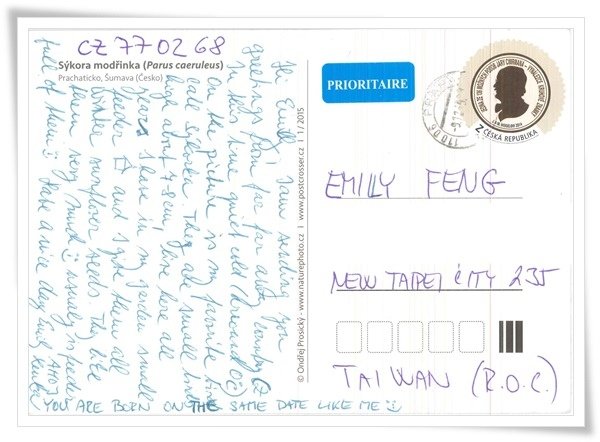 CZ 770268
Sýkora modřinka (Parus caeruleus)
Prachaticko, Šumava (Česko)
Hi Emily, I am sending you
greetings from far far away country CZ
In this time quiet cold (around 0°C)
on the picture is my favorite bird
have about 48 cm, live here all
years. I have in my garden small
feeder and I give them all
winter sunflower seeds. They like
them very much :) usually is feeder
full of them :) Have a nice day Emily,
YOU ARE BORN ON THE SAME DATE LIKE ME :)
© Ondřej Prosický - www.naturephoto.cz | www.postcrosser.cz | 1/2015
PRIORITAIRE
Z ČESKÁ REPUBLIKA
EMILLY FENG
NEW TAIPEI CITY 235
TAIWAN (R.O.C.)